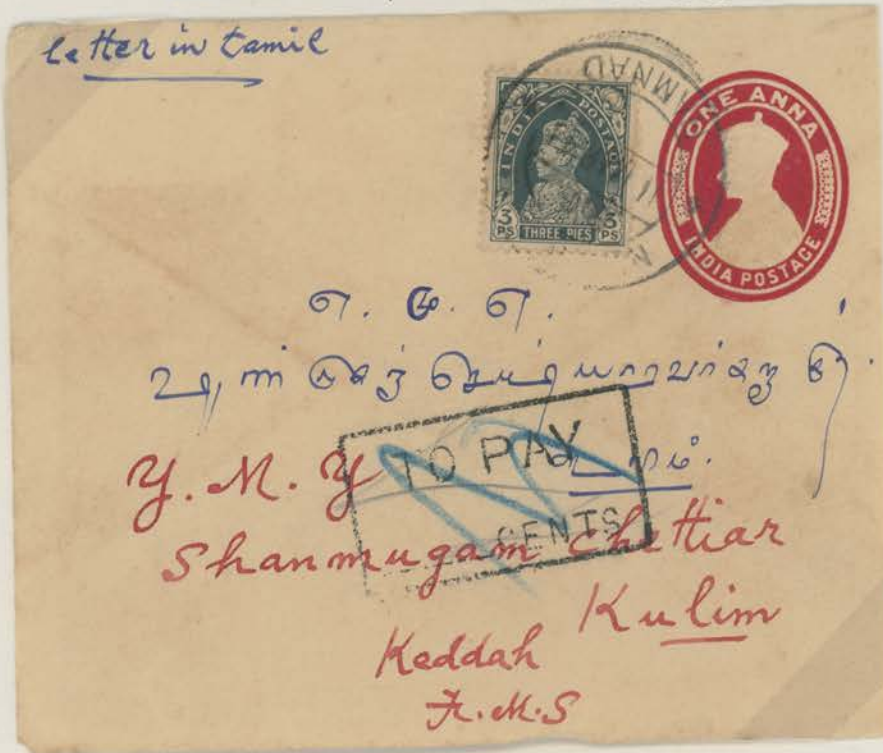 letter in tamil
INDIA POSTAGE
3 PS THREE PIES 3 PS
ONE ANNA
INDIA POSTAGE
MNAD
எ. மு. எ.
Y. M. Y
TO PAY
CENTS
Shanmugam Chettiar
Kulim
Keddah
F.M.S